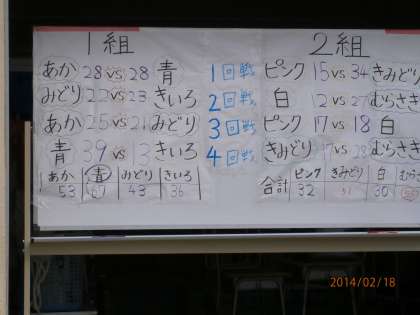 1組
あか 28 vs 28 青
みどり 22 vs 23 きいろ
あか 25 vs 21 みどり
青 39 vs 13 きいろ
あか 青 みどり きいろ
53 67 43 36
1回戦
2回戦
3回戦
4回戦
2組
ピンク 15 vs 34 きみどり
白 12 vs 27 むらさき
ピンク 17 vs 18 白
きみどり 17 vs 28 むらさき
合計 ピンク きみどり 白 むらさ
32 51 30
2014/02/18